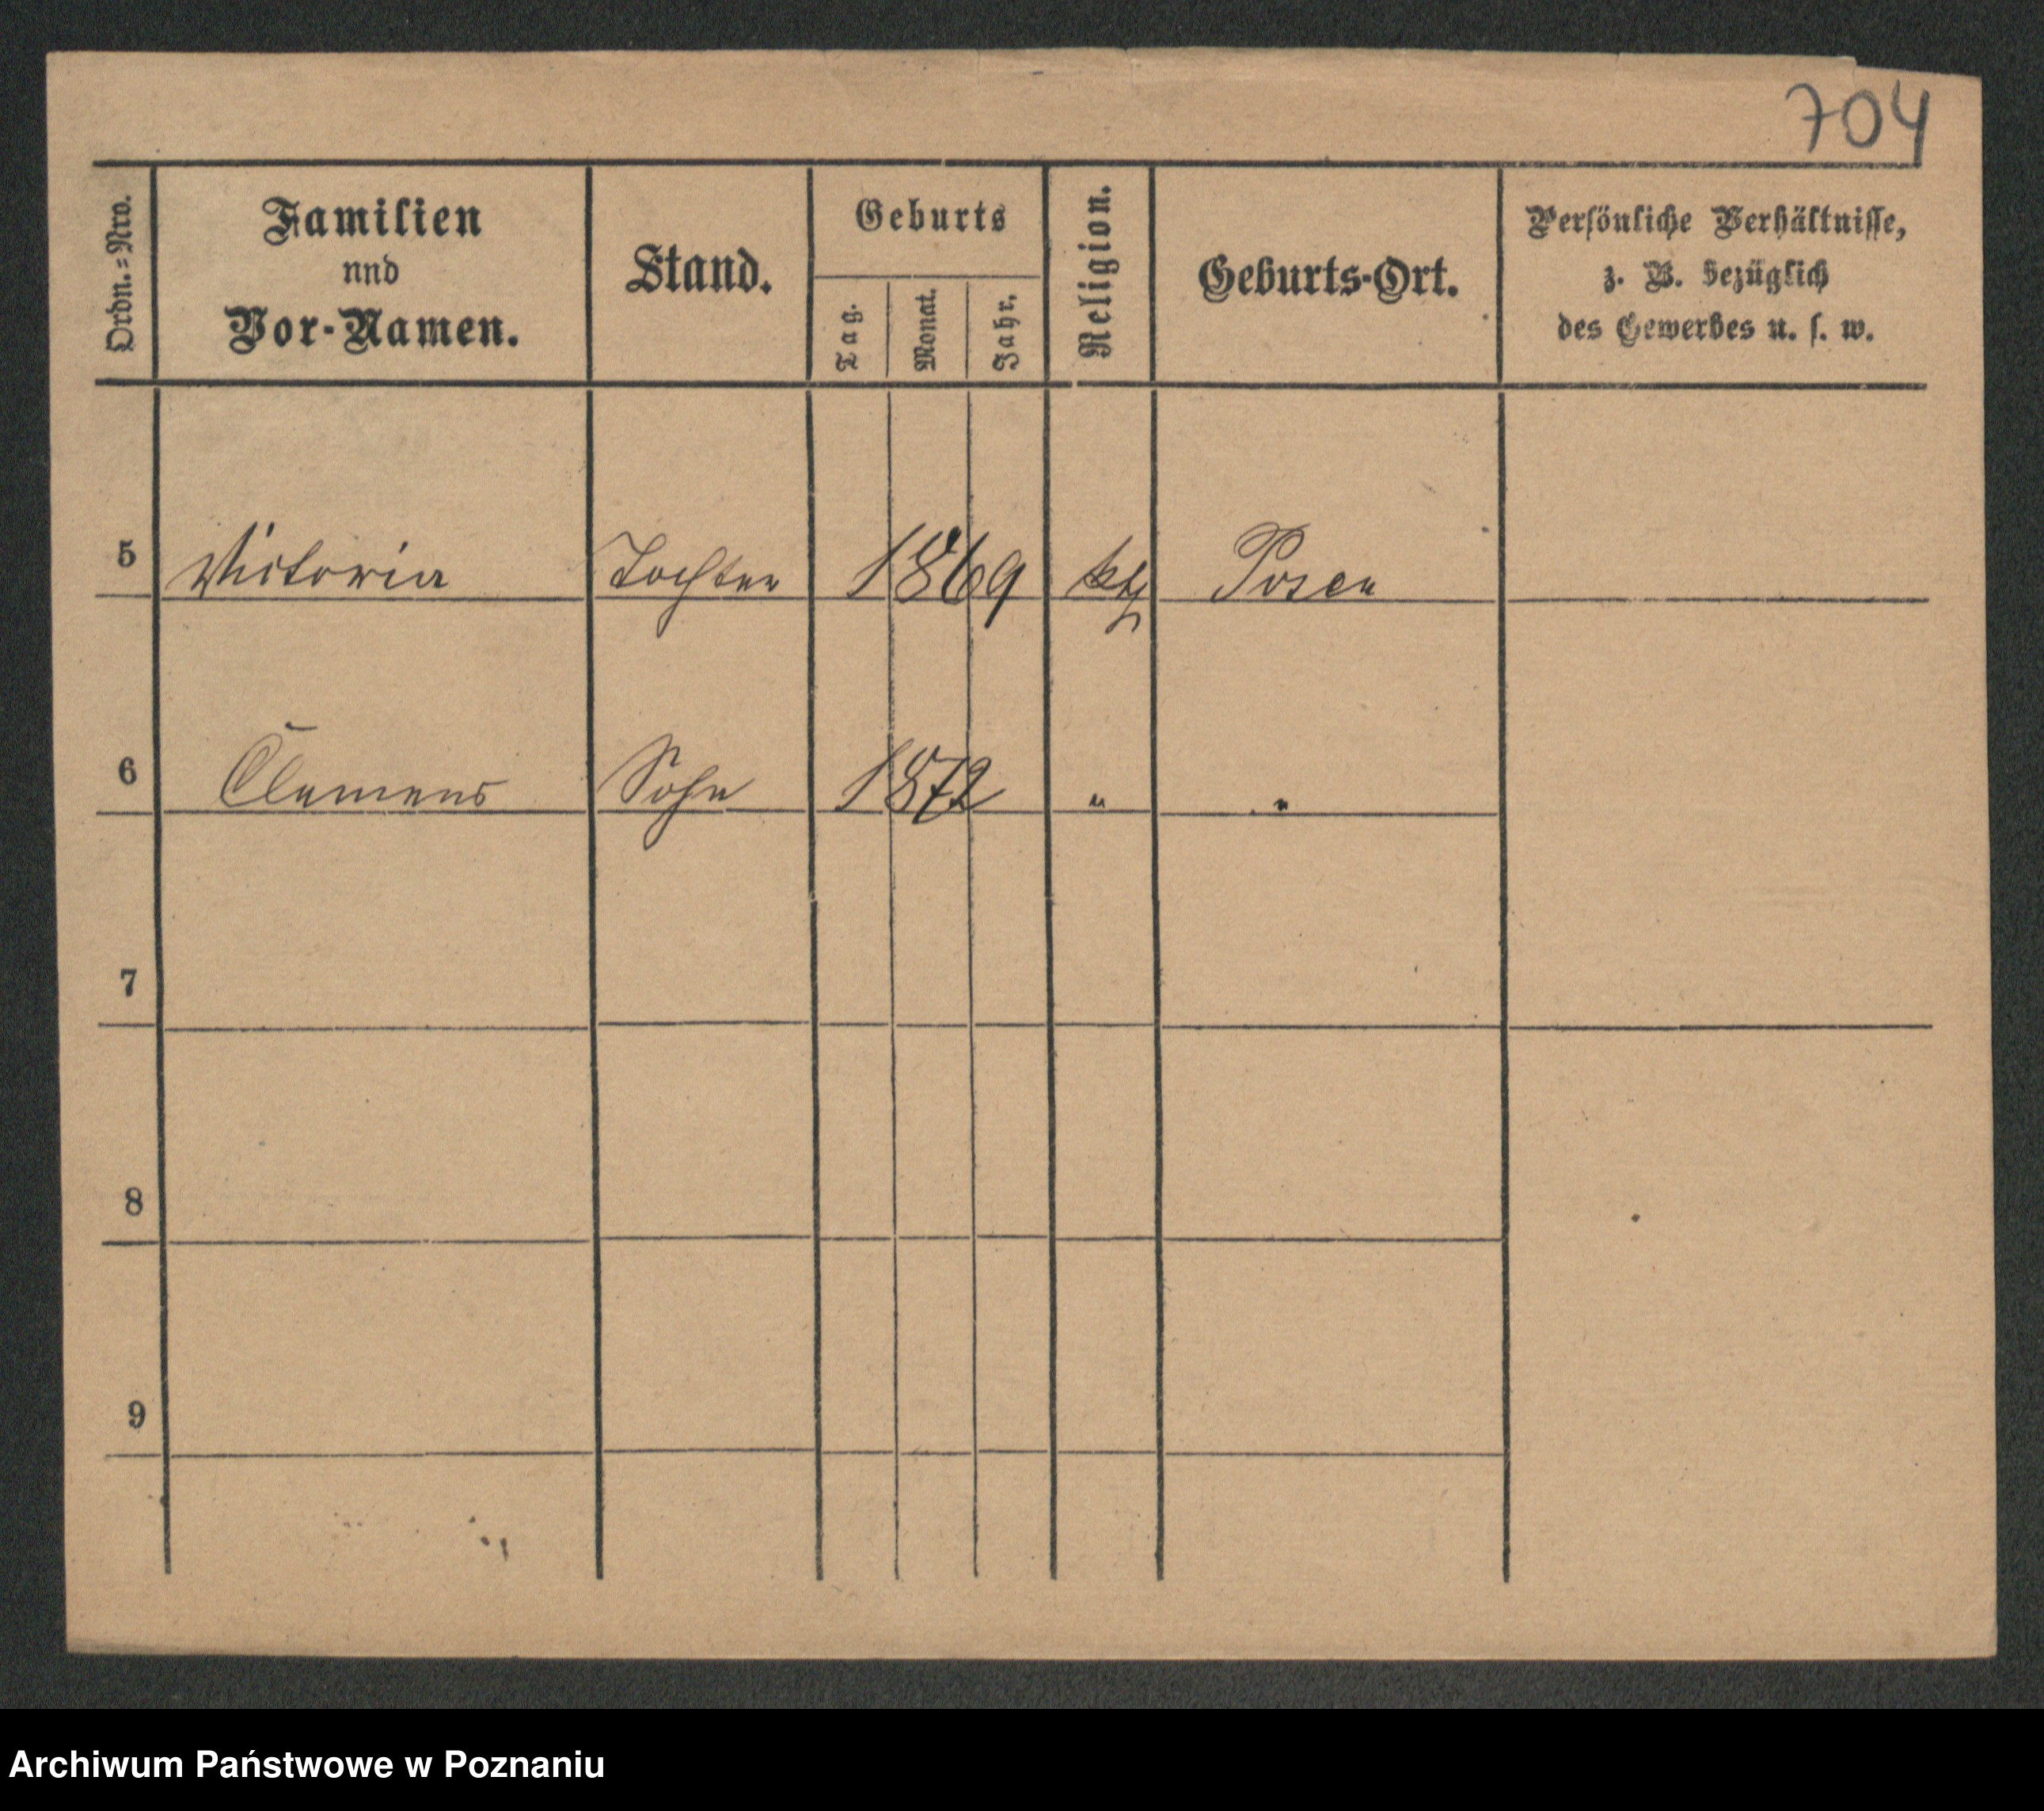 704
Ordn.=Nro.
Familien
nnd
Vor-Namen.
Stand.
Geburts
Tag.
Monat.
Jahr.
Religion.
Geburts-Ort.
Persönliche Verhältnisse,
z. B. bezüglich
des Gewerbes u. s. w.
5 Victoria Tochter 1869 kth Posen
6 Clemens Sohn 1872 " "
7
8
9
Archiwum Państwowe w Poznaniu